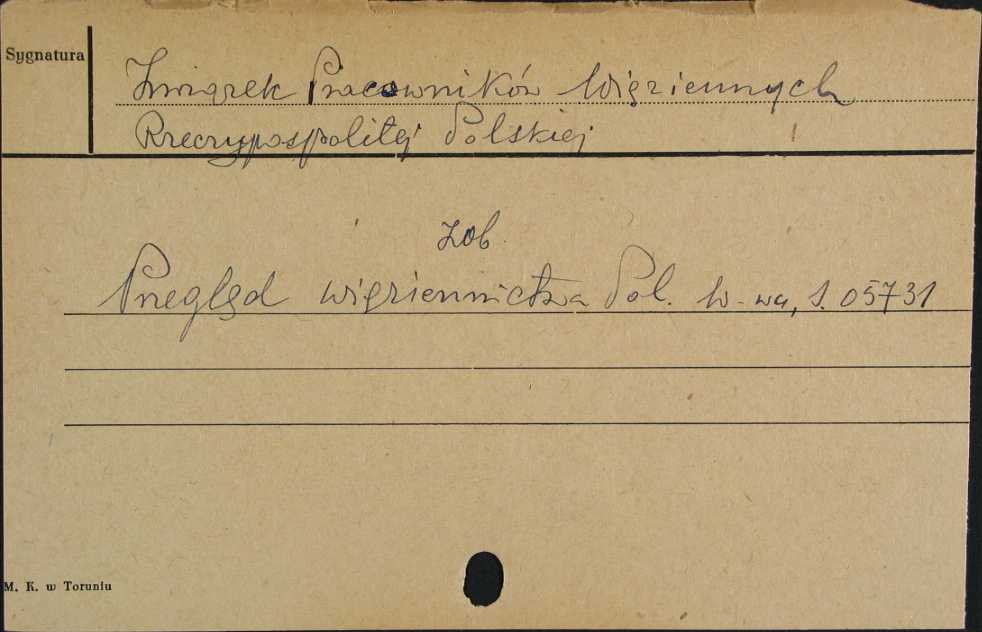 Sygnatura
Związek Pracowników Więziennych
Rzeczypospolitej Polskiej
zob.
Przegląd więziennictwa Pol. W-wa, S. 05731
M. K. w Toruniu